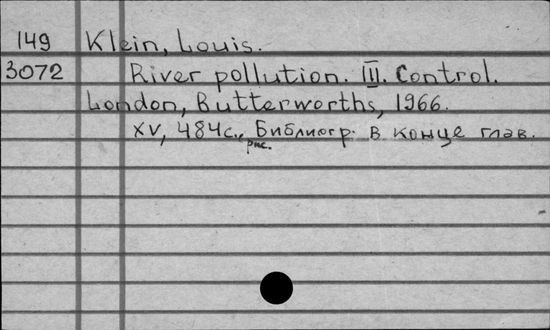 149 Klein, Louis.
3072 River pollution. III. Control.
London, Butterworths, 1966.
XV, 484с., рис. Библиогр. в конце глав.